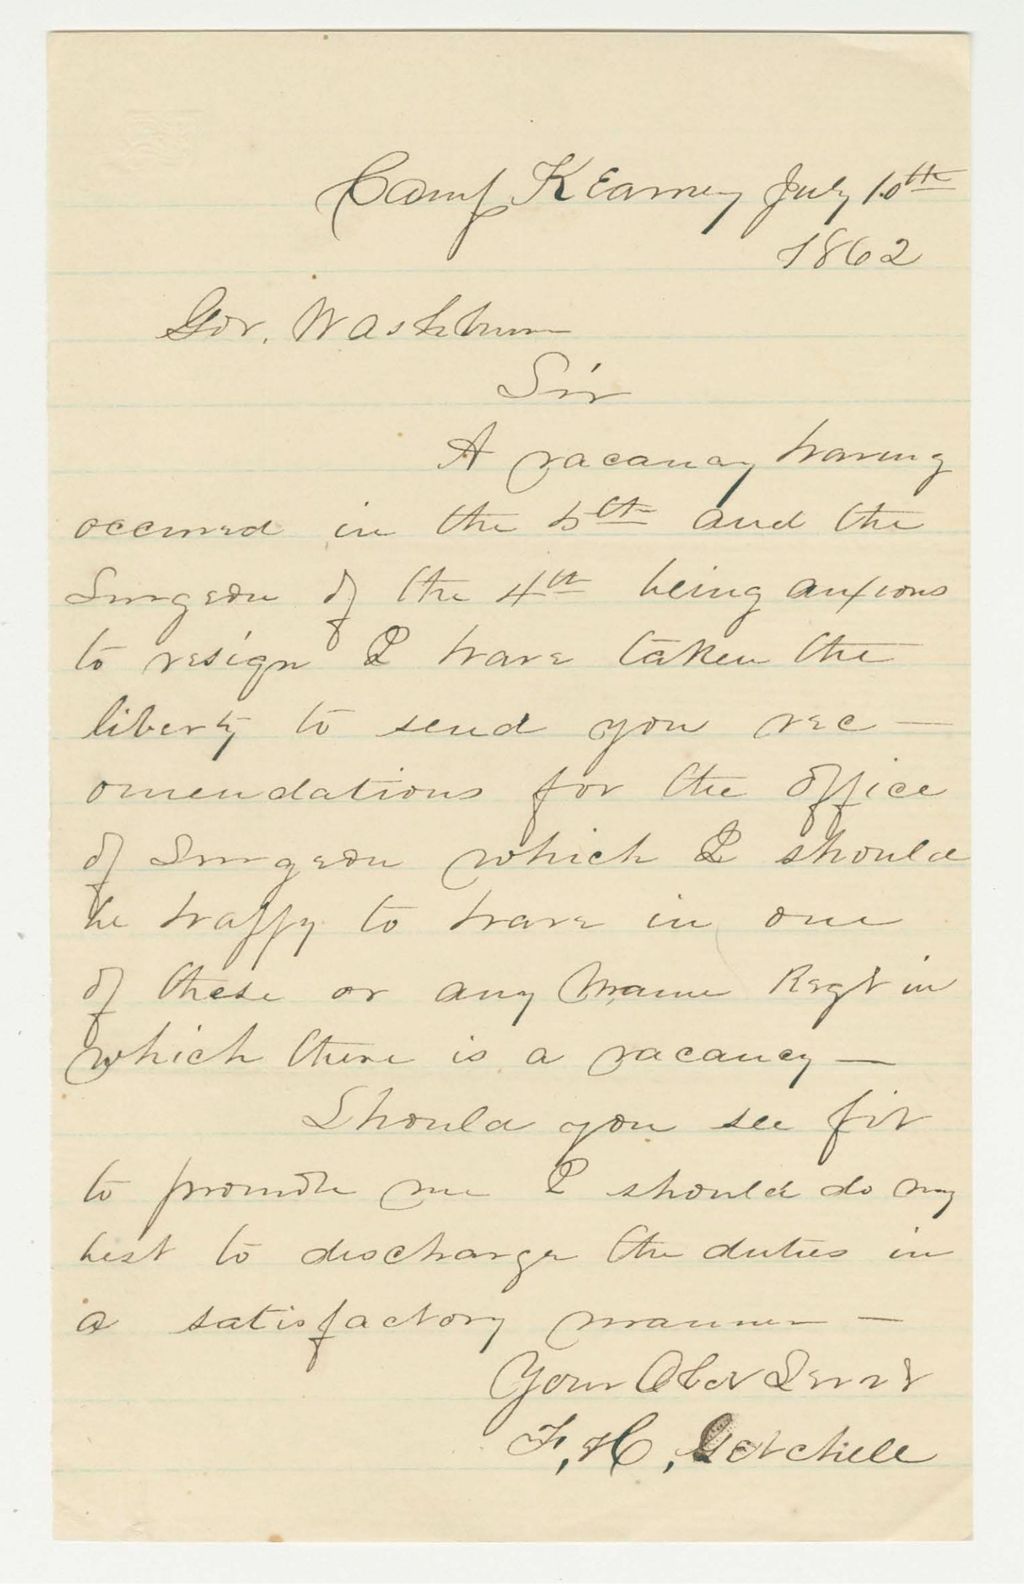 Camp Kearney July 10th
1862
Gov. Washburn
Sir
A vacancy having
occured in the 5th and the
Surgeon of the 4th being anxious
to resign I have taken the
liberty to send you rec-
omendations for the office
of Surgeon which I should
be happy to have in one
of these or any Maine Regt in
which there is a vacancy —
Should you see fit
to promote me I should do my
best to discharge the duties in
a satisfactory manner —
Your Obdt Servt
F. H. Getchell